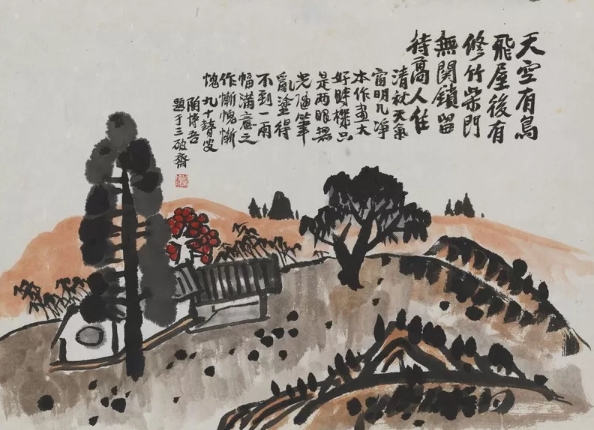 天空有鳥
飛屋後有
修竹柴門
無関鎖留
待高人住
清秋天氣
窗明几淨
本作畫大
好時機只
是兩眼無
光隨筆
亂塗得
不到一兩
幅滿意之
作慚愧慚
愧九十瞽叟
陶博吾
題于三破齋